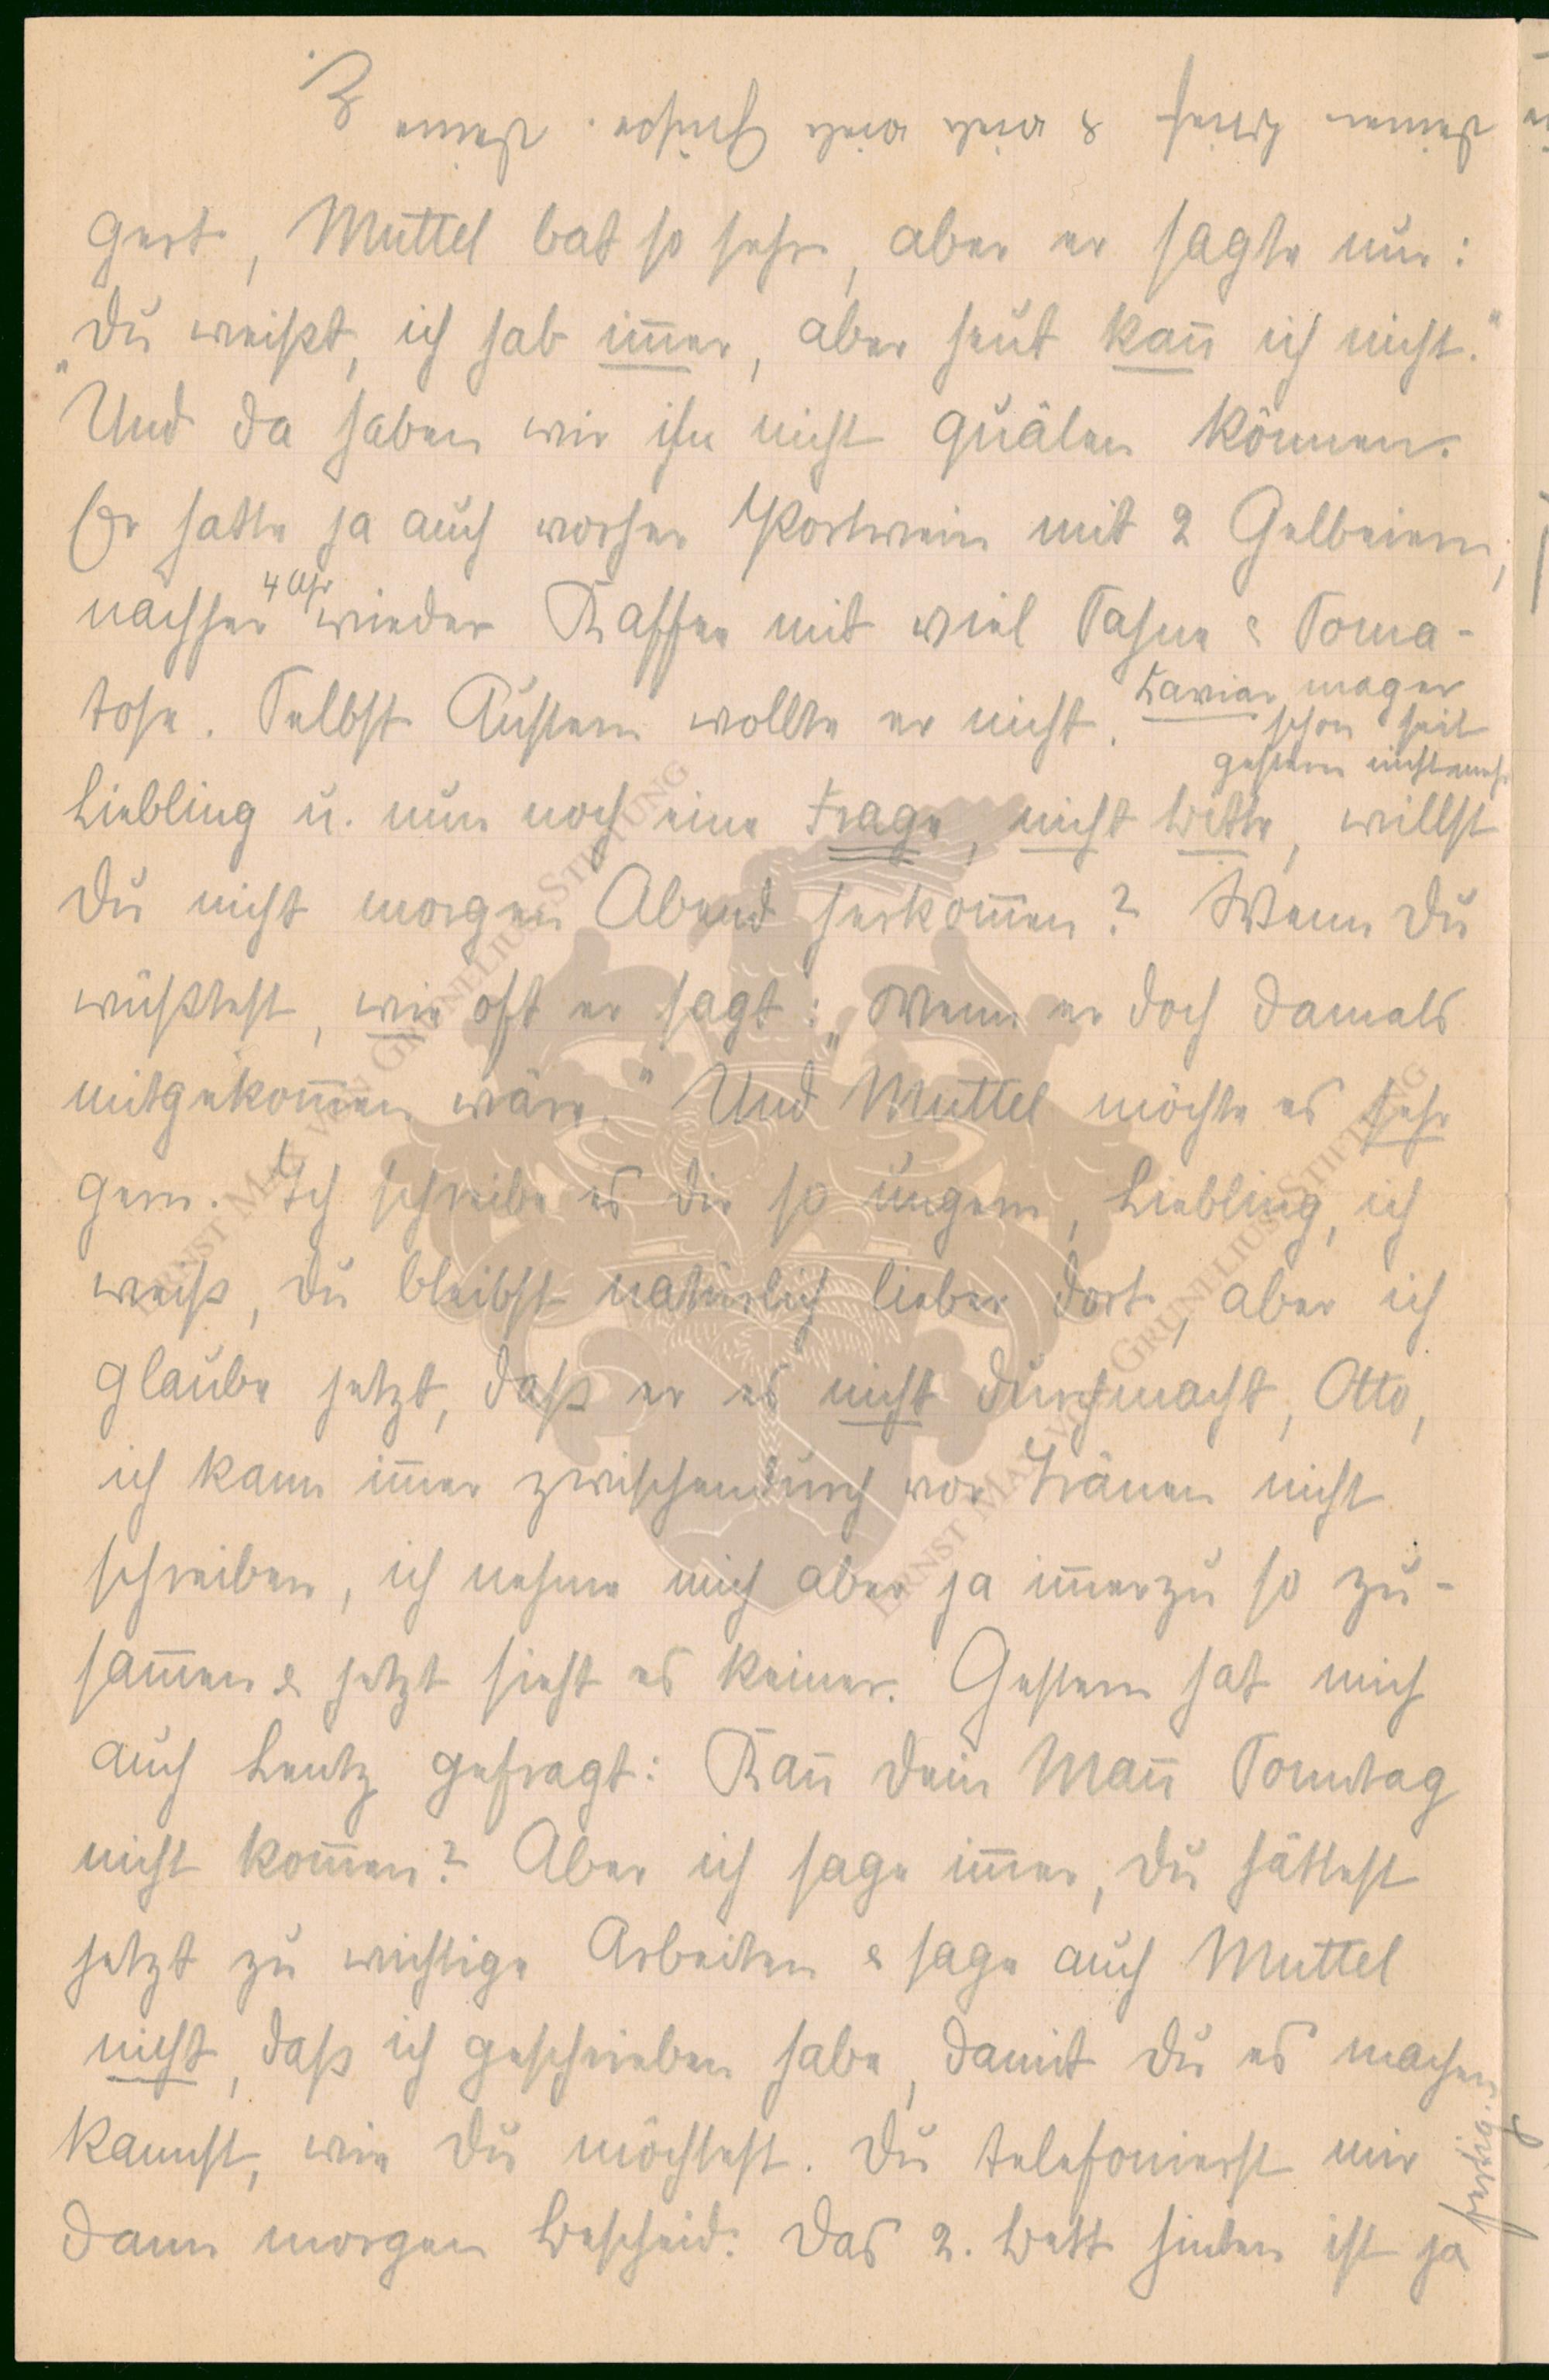 gert, Muttel bat so sehr, aber er sagte nur:
„Du weißt, ich hab im̅er, aber heut kan̅ ich nicht.“
Und da haben wir ihn nicht quälen können.
Er hatte ja auch vorher Portwein mit 2 Gelbeiern,
nachher 4 Uhr wieder Kaffee mit viel Sahne & Soma-
tose. Selbst Austern wollte er nicht. Kaviar mag er
schon seit
gestern nicht mehr
Liebling u. nun noch eine Frage, nicht Bitte, willst
Du nicht morgen Abend herkom̅en? Wenn Du
wüßtest, wie oft er sagt: „Wenn er doch damals
mitgekom̅en wäre.“ Und Muttel möchte es sehr
gern. Ich schreibe es dir so ungern, Liebling, ich
weiß, du bleibst natürlich lieber dort, aber ich
glaube jetzt, daß er es nicht durchmacht, Otto,
ich kann im̅er zwischendurch vor Tränen nicht
schreiben, ich nehme mich aber ja im̅erzu so zu-
sam̅en & jetzt sieht es keiner. Gestern hat mich
auch Leutz gefragt: Kan̅ dein Man̅ Sonntag
nicht kom̅en? Aber ich sage im̅er, Du hättest
jetzt zu wichtige Arbeiten & sage auch Muttel
nicht, daß ich geschrieben habe, damit Du es machen
kannst, wie Du möchtest. Du telefonierst mir
dann morgen Bescheid. Das 2. Bett hinten ist ja
fertig.
& viele viele Grüße. Deine
ERNST MAX VON GRUNELIUS-STIFTUNG
ERNST MAX VON GRUNELIUS-STIFTUNG